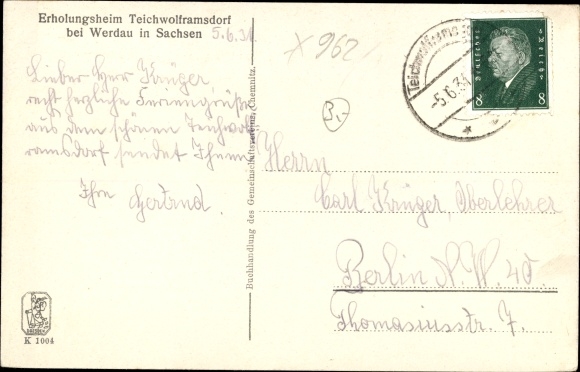 Erholungsheim Teichwolframsdorf
bei Werdau in Sachsen 5.6.31.
Lieber Herr Krüger,
recht herzliche Feriengrüße
aus dem schönen Teichwolf-
ramsdorf sendet Ihnen
Ihre Gertrud.
K 1004
Buchhandlung des Gemeinschaftsvereins, Chemnitz.
X 962
3.-
Teichwolframsdorf
-5.6.31
Deutsches Reich
8 8
Herrn
Carl Krüger, Oberlehrer
Berlin N.W. 40.
Thomasiusstr. 7.